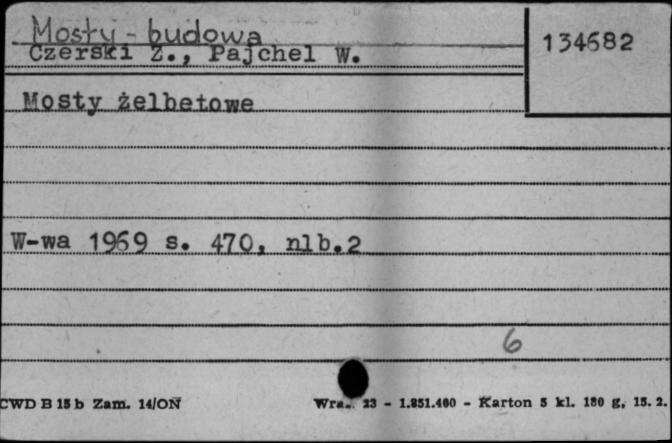 Mosty - budowa
134682
Czerski Z., Pajchel W.
Mosty żelbetowe
W-wa 1969 s. 470, nlb.2
6
CWD B 15 b Zam. 14/ON 23 - 1.851.400 - Karton 5 kl. 180 g, 15. 2.